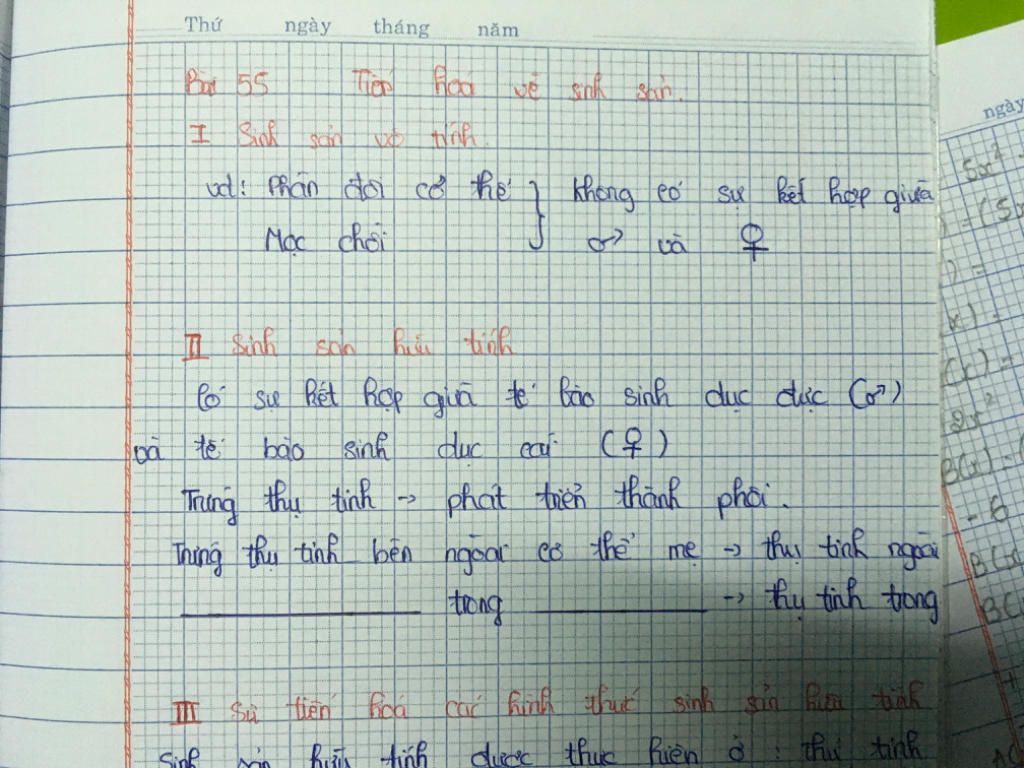 Thứ ngày tháng năm
Bài 55 Tiến hoá về sinh sản.
I Sinh sản vô tính.
vd: Phân đôi cơ thể } không có sự kết hợp giữa
Mọc chồi ♂ và ♀
II Sinh sản hữu tính
Có sự kết hợp giữa tế bào sinh dục đực (♂)
và tế bào sinh dục cái (♀)
Trứng thụ tinh → phát triển thành phôi.
Trứng thụ tinh bên ngoài cơ thể mẹ → thụ tinh ngoài
trong → thụ tinh trong
III Sự tiến hoá các hình thức sinh sản hữu tính
Sinh sản hữu tính được thực hiện ở : thụ tinh
ngày
5x²